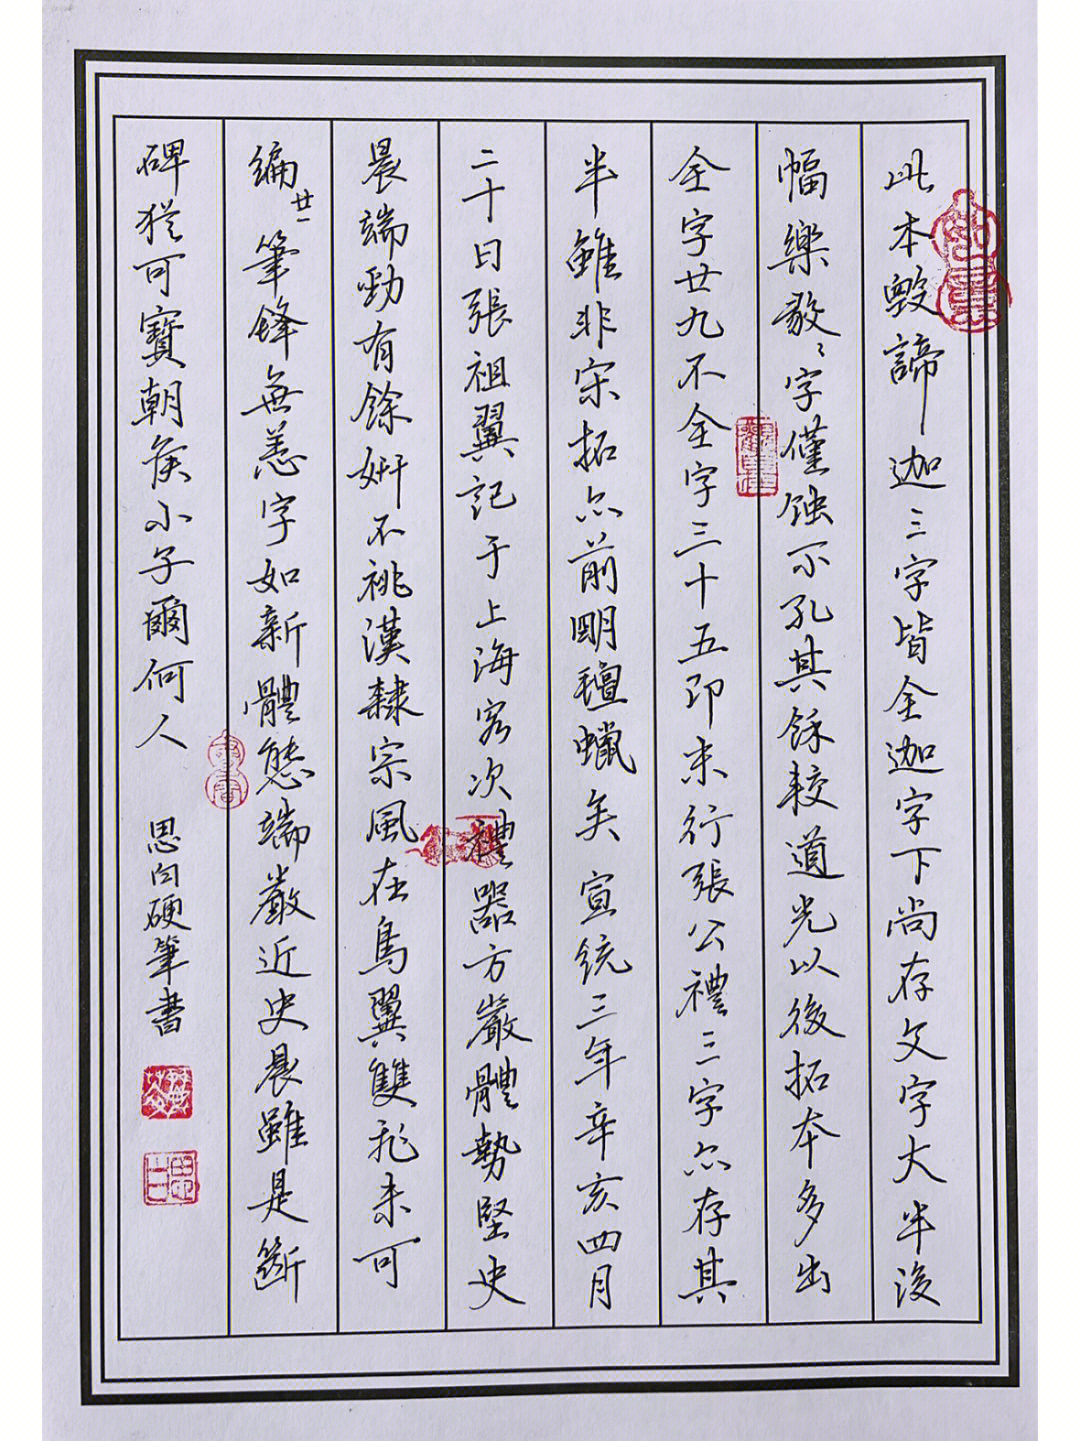 此本毀諦丨迦三字皆全迦字下尚存文字大半後
幅樂敬〻字僅蝕不孔其餘較道光以後拓本多出
全字廿九不全字三十五即未行張公禮三字亦存其
半雖非宋拓亦前明氊蠟矣宣統三年辛亥四月
二十日張祖翼記于上海客次禮器方嚴體勢堅史
晨端勁有餘妍不祧漢隸宗風在鳥翼雙飛未可
編廿一筆鋒無恙字如新體態端嚴近史晨雖是斷
碑猶可寶朝侯小子爾何人
思白硬筆書